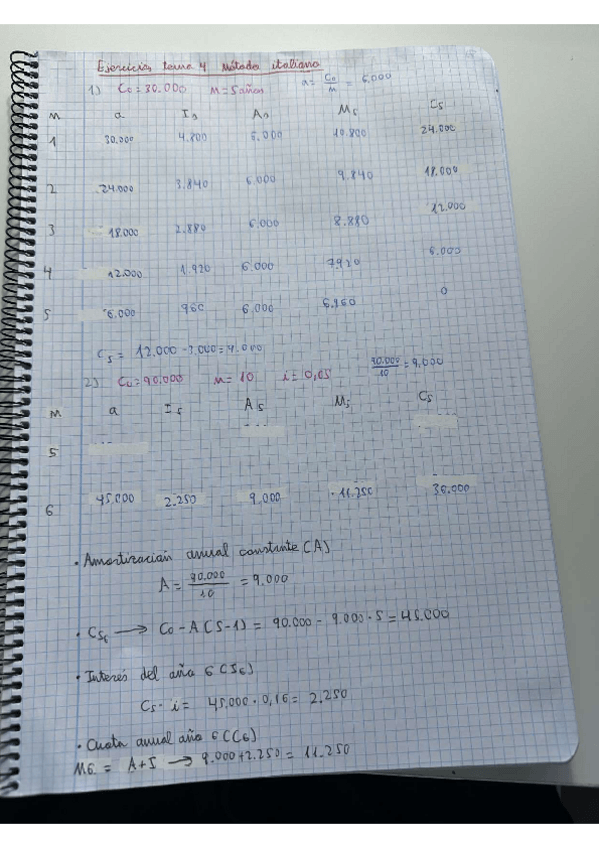 Ejercicios tema 4 Método italiano
1) C0 = 30.000 M = 5 años a = C0/m = 6.000
M a Is As Ms Cs
1 30.000 4.800 6.000 10.800 24.000
2 24.000 3.840 6.000 9.840 18.000
3 18.000 2.880 6.000 8.880 12.000
4 12.000 1.920 6.000 7920 6.000
5 6.000 960 6.000 6.960 0
C5 = 12.000 - = 4.000
2) C0 = 90.000 m = 10 i = 0,05 90.000/10 = 9,000
M a Is As Ms Cs
5
6 45.000 2.250 9.000 11.250 36.000
· Amortización anual constante (A)
A = 90.000/10 = 9.000
· CS6 → C0 - A (S-1) = 90.000 - 9.000 · 5 = 45.000
· Interés del año 6 (I6)
Cs · i = 45.000 · 0,16 = 2.250
· Cuota anual año 6 (C6)
M6. = A+I → 9.000 + 2.250 = 11.250